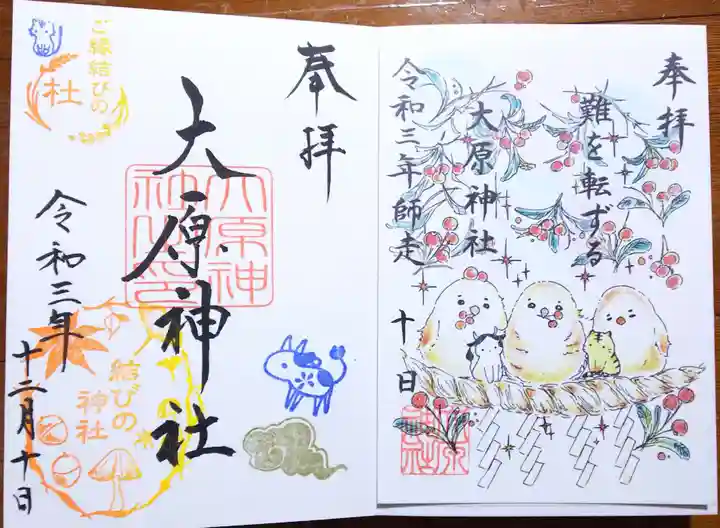 奉拝
難を転ずる
大原神社
令和三年師走
十日
奉拝
大原神社
大原神
令和三年
十二月十日
ご縁結びの
社
結びの
神社